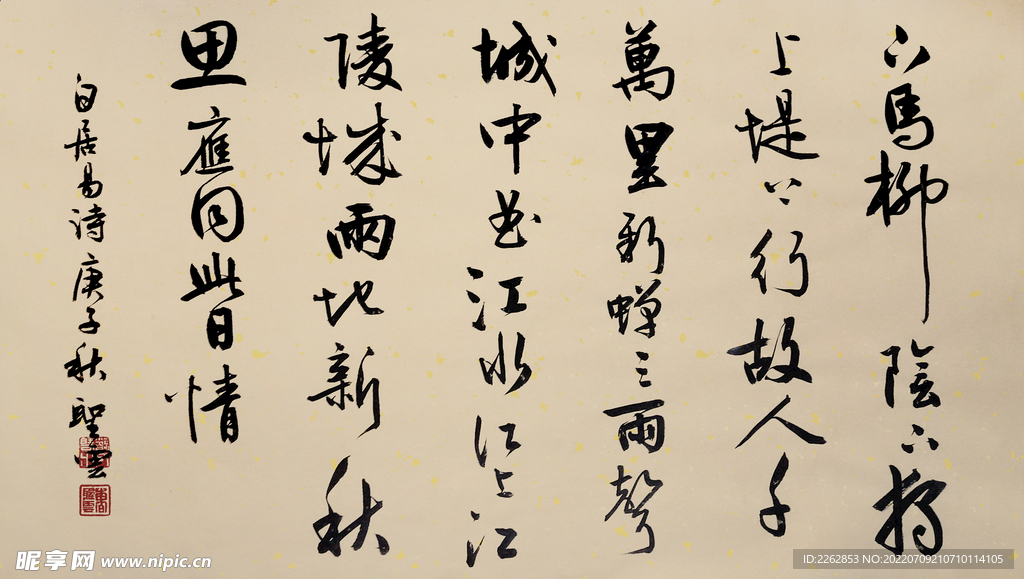 下馬柳陰下獨
上堤上行故人千
萬里新蟬三兩聲
城中曲江水江上江
陵城兩地新秋
思應同此日情
白居易詩庚子秋聖雲
昵享网 www.nipic.cn
ID:2262853 NO:20220709210710114105